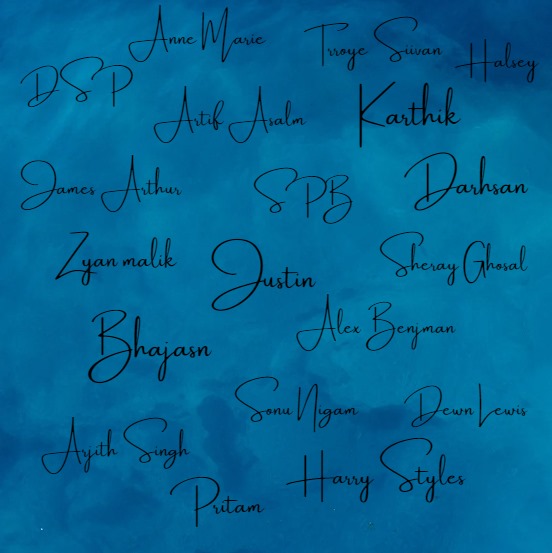 Anne Marie
Trroye Siivan
Halsey
DSP
Artif Asalm
Karthik
James Arthur
SPB
Darhsan
Zyan malik
Justin
Sheray Ghosal
Bhajasn
Alex Benjman
Sonu Nigam
Dewn Lewis
Ayith Singh
Harry Styles
Pritam